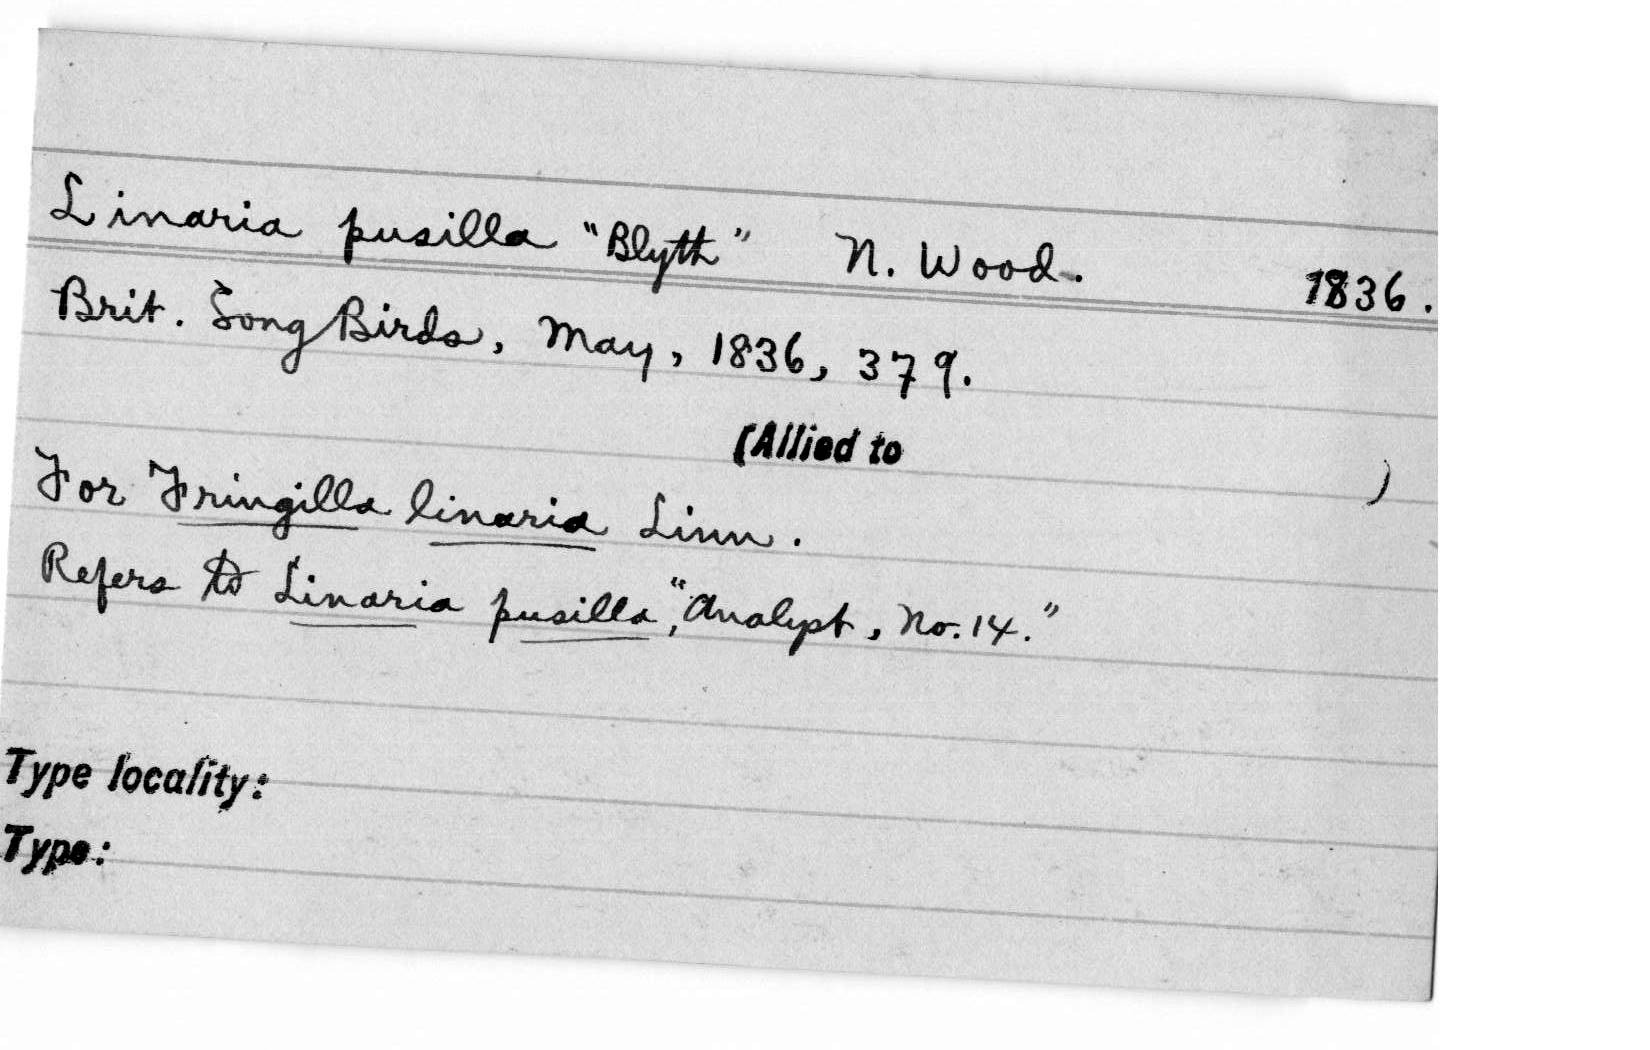 Linaria pusilla "Blyth" N. Wood. 1836.
Brit. Song Birds, May, 1836, 379.
(Allied to )
For Fringilla linaria Linn.
Refers to Linaria pusilla, "Analyst, No. 14."
Type locality:
Type: